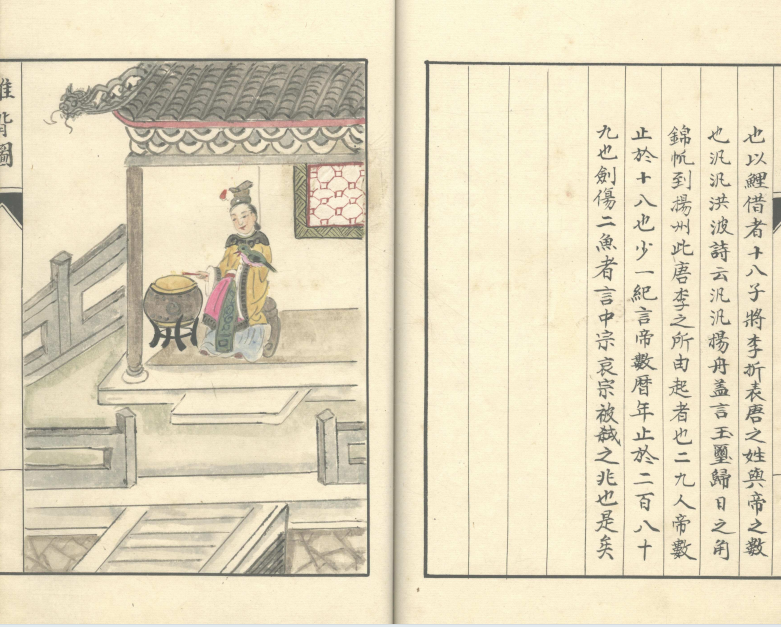 也以鯉借者十八子將李折表唐之姓與帝之數
也汎汎洪波詩云汎汎揚舟蓋言玉璽歸日之角
錦帆到揚州此唐李之所由起者也二九人帝數
止於十八也少一紀言帝數曆年止於二百八十
九也劍傷二魚者言中宗哀宗被弒之兆也是矣
推背圖